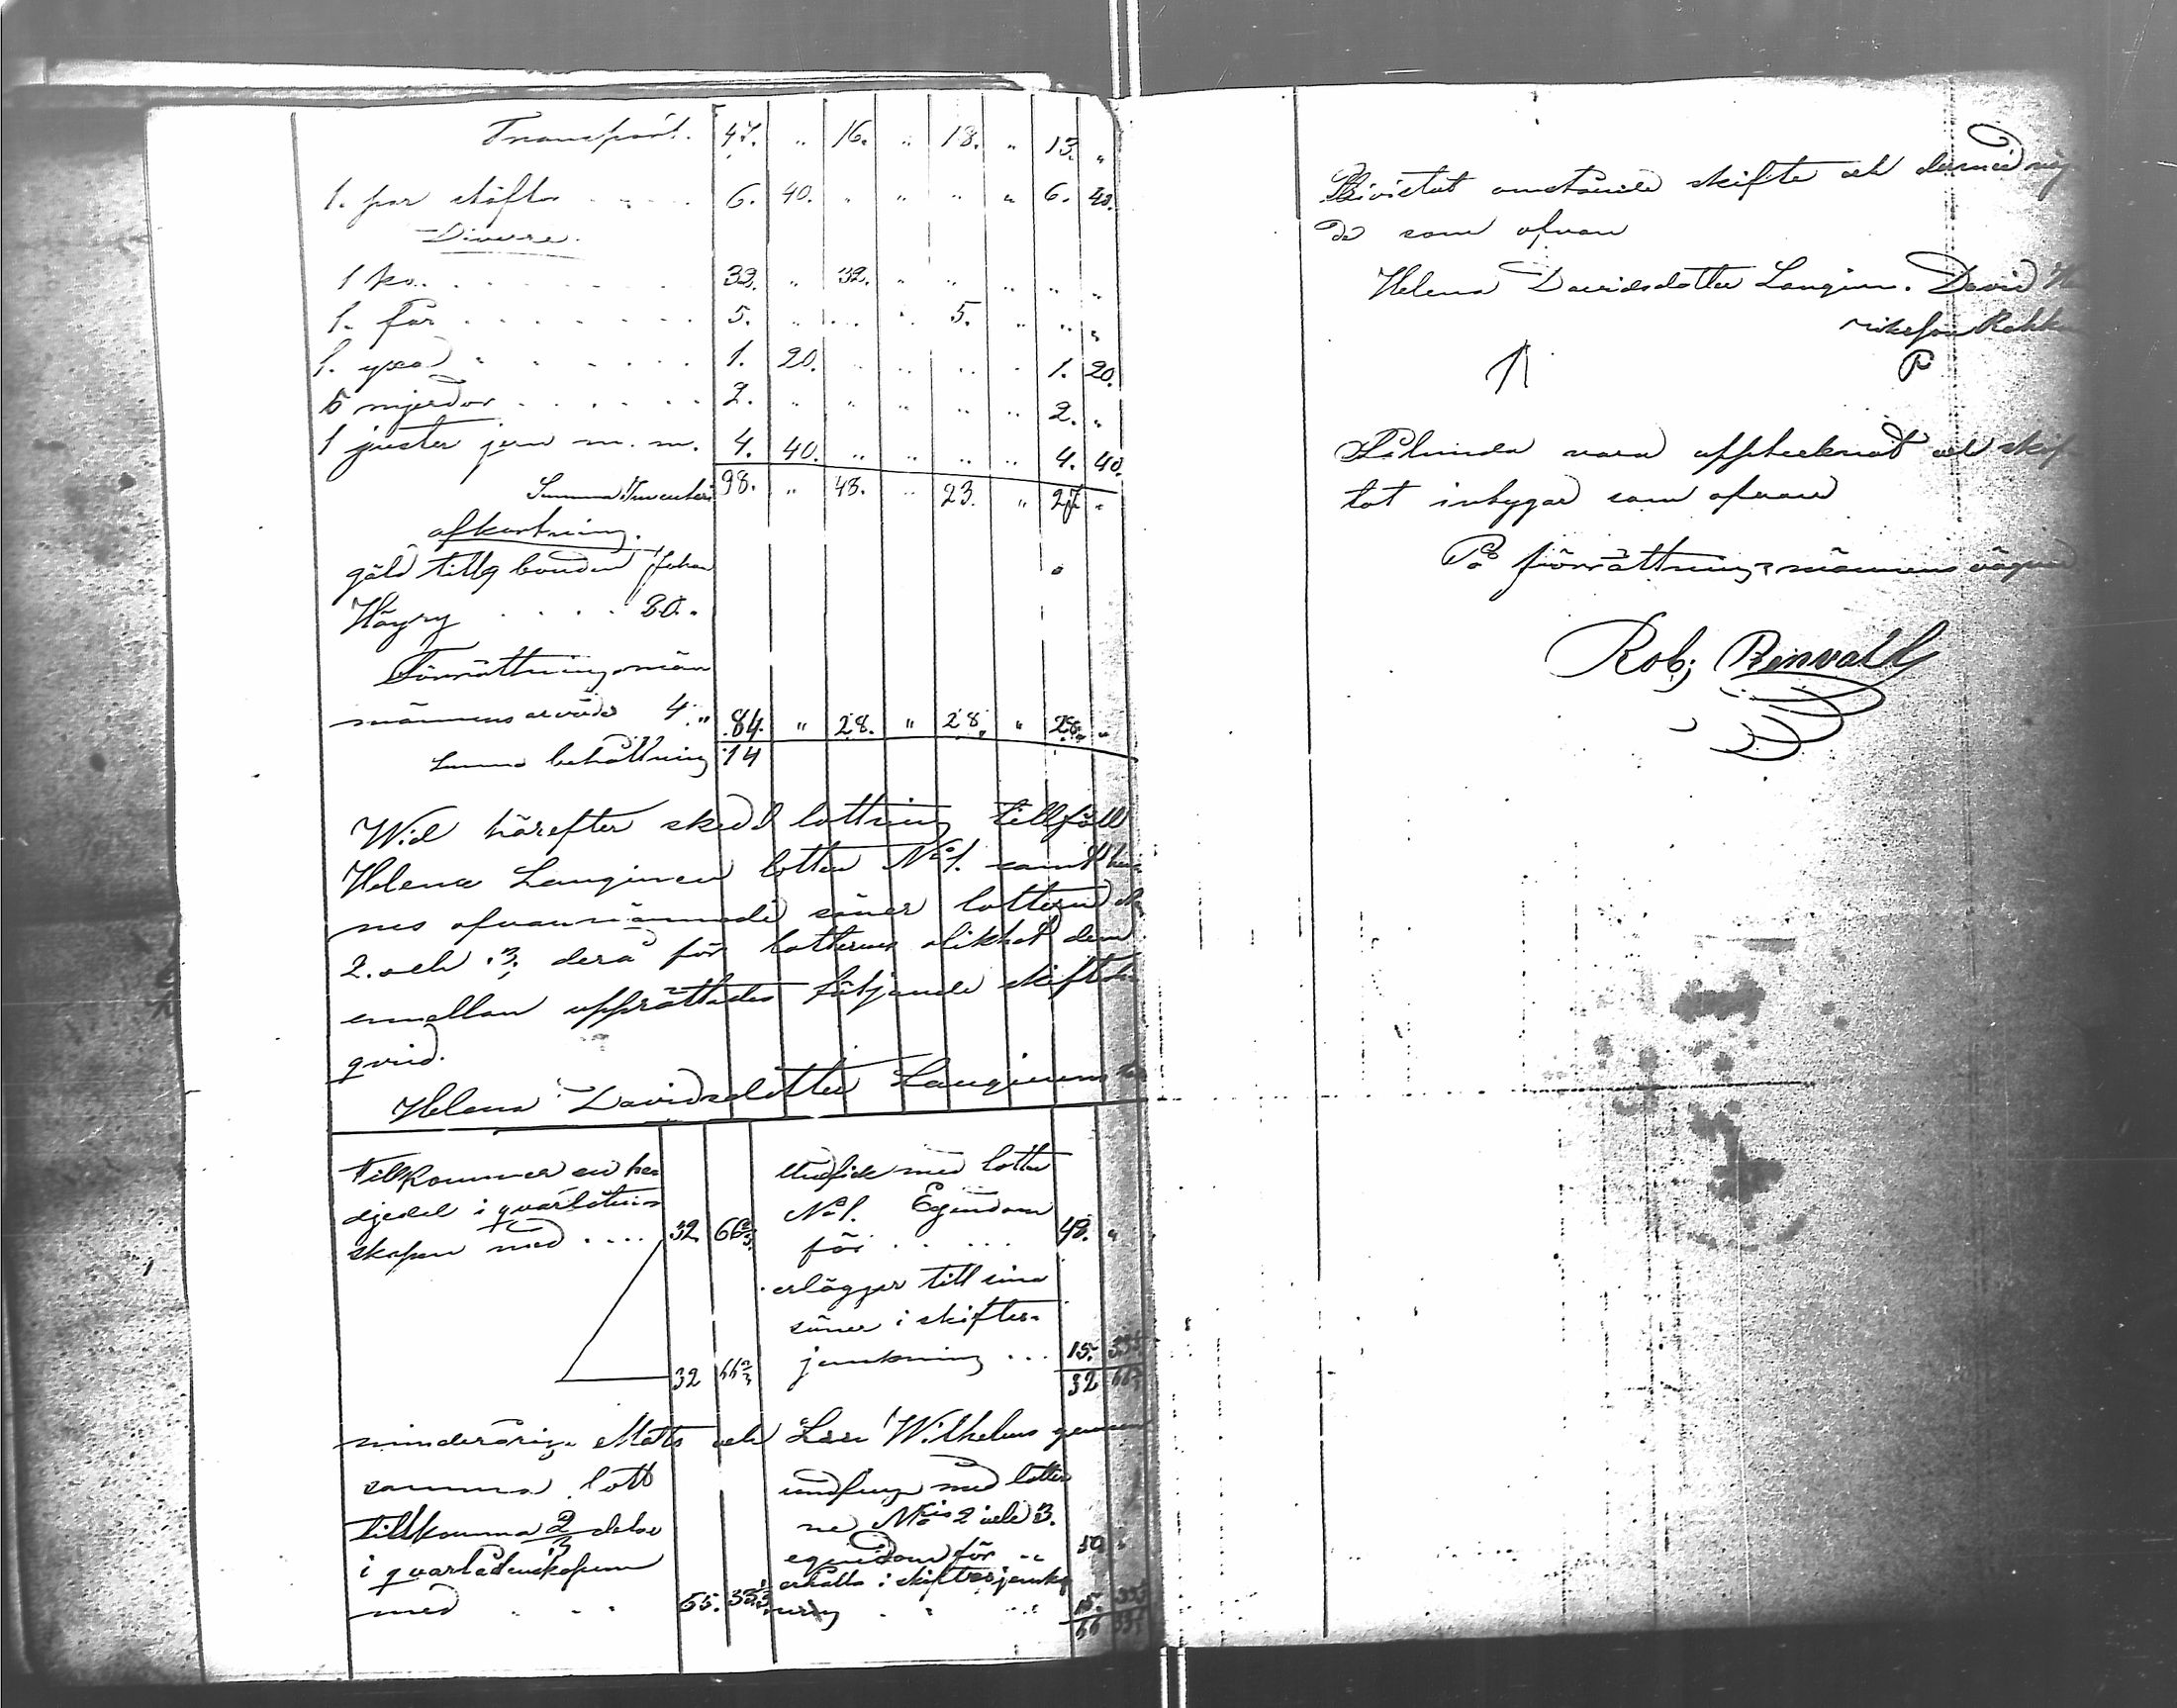 Transport. 47. " 16. " 18. " 13. "
1. par stöflor . . . . 6. 40. " " " " 6. 40.
Diverse.
1 ko . . . . . . . 32. " 32. " " " " "
1. får . . . . . . . 5. " " " 5. " " "
1. yxa . . . . . . 1. 20. " " " " 1. 20.
5 mjerdor . . . . . . 2. " " " " " 2. "
1 juster jern m. m. 4. 40. " " " " 4. 40.
Summa Inventari 98. " 48. " 23. " 27. "
afkortning.
gäld till bonden Johan
Häyry . . . . 20. "
Förrättningsmän
männens arvode 4. " 84. " 28. " 28. " 28. "
Summa behållning 74
Wid härefter skedd lottning tillföll
Helena Langinen lotten No 1. samt hen
nes ofvannämnde söner lotterna
2. och 3; dera för lotternas olikhet dem
emellan upprättades följande skifts li
qvid.
Helena Davidsdotter Langinens
Tillkommer en
djedel i qvarlåten-
skapen med . . . . 32. 66 2/3.
32 66 2/3
Undfick med lotten
No 1. Egendom
för . . . . . 48. "
erlägger till sina
söner i skiftes-
jemkning . . . 15. 33 1/3
32 66 2/3
minderårige Matts och Lars Wilhelms gemen
samma lott
tillkomma 2/3 delar
i qvarlåtenskapen
med . . . 65. 33 1/3
undfingo med lotter
ne Nris 2 och 3.
egendom för . . 50 "
erhålla i skiftesjemk
ning . . . 15. 33 1/3
65 33 1/3
omstående skifte och dermed nöj
da som ofvan
Helena Davidsdotter Langinen. David
P
Sålunda vara uppteknat och skif
tat intygar som ofvan
På förrättningsmännens vägnar
Rob; Renvall